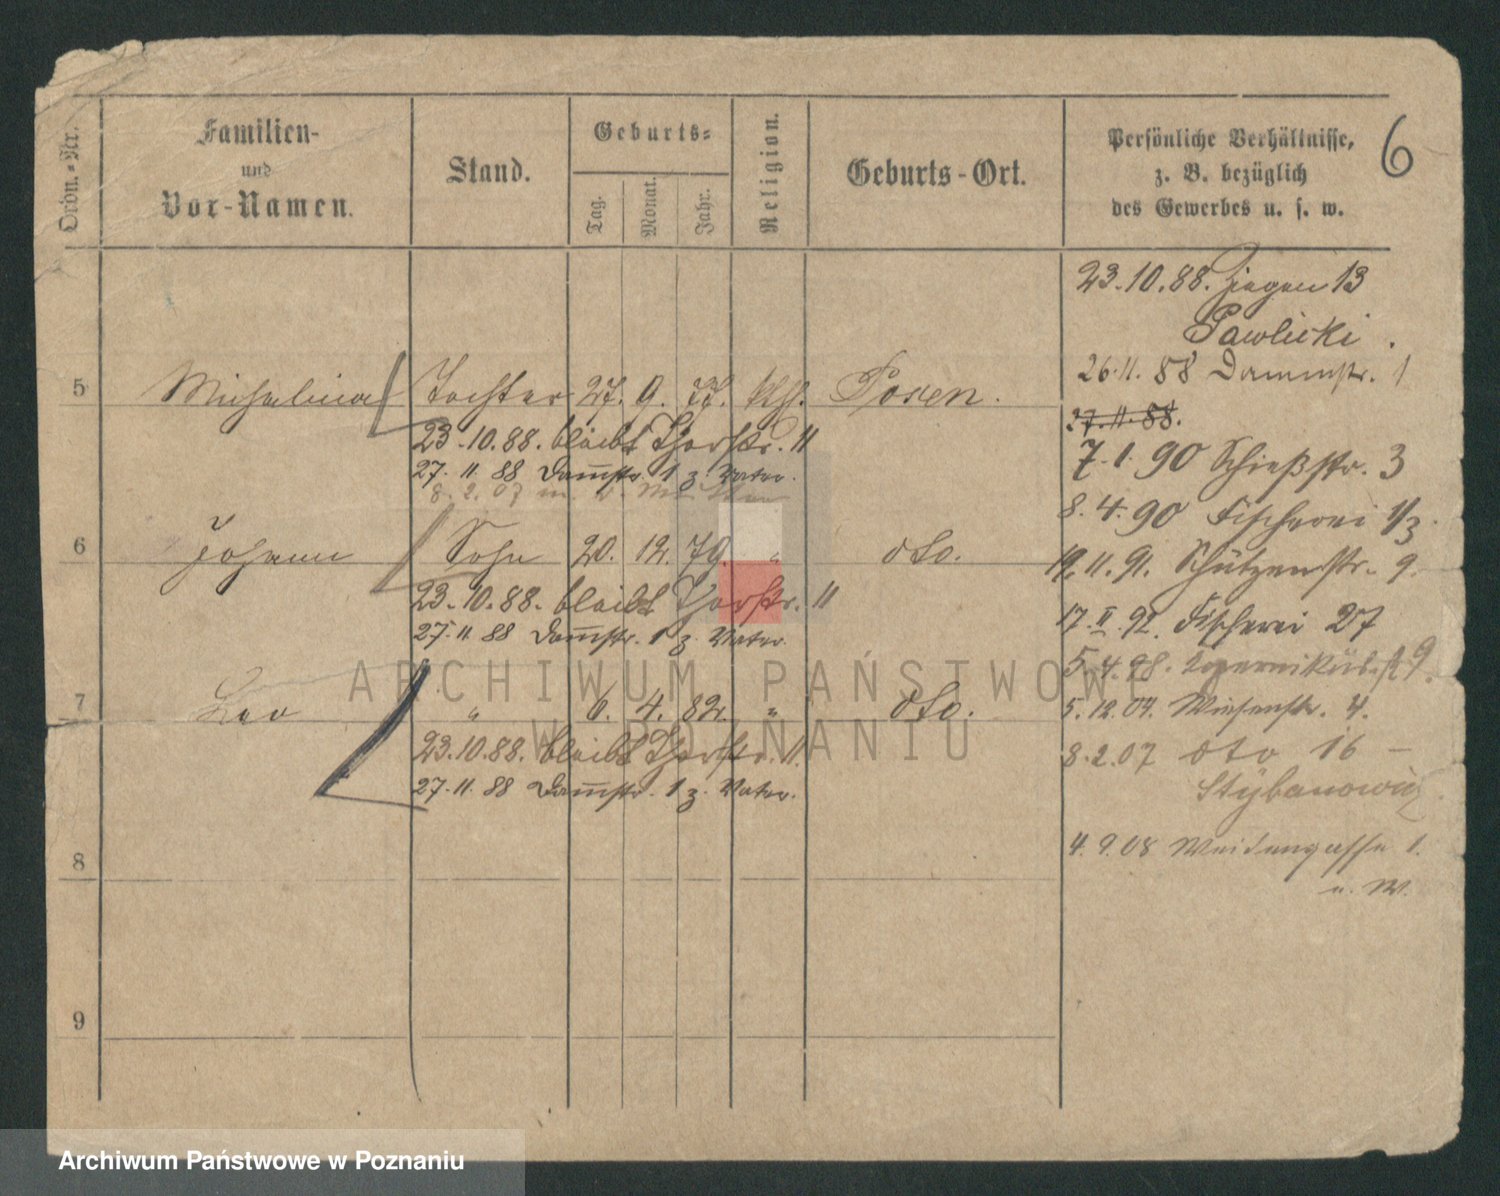 6
Ordn.-Nr.
Familien-
und
Vor-Namen.
Stand.
Geburts-
Tag.
Monat.
Jahr.
Religion.
Geburts-Ort.
Persönliche Verhältnisse,
z. B. bezüglich
des Gewerbes u. s. w.
5 Michalina Tochter 27. 9. 77. kth. Posen.
23.10.88. bleibt Thorstr. 11
27.11.88 Dammstr. 1 z. Vater.
8.2.07
6 Johann Sohn 20. 12. 79. " dto.
23.10.88. bleibt Thorstr. 11
27.11.88 Dammstr. 1 z. Vater.
7 Leo " 6. 4. 82. " dto.
23.10.88. bleibt Thorstr. 11.
27.11.88 Dammstr. 1 z. Vater.
8
9
23.10.88. Ziegen 13
Pawlicki.
26.11.88 Dammstr. 1
27.11.88.
7.1.90 Schießstr. 3
8.4.90 Fischerei 1/3.
19.11.91. Schützenstr. 9.
17.II.92. Fischerei 27
5.4.98. 9.
5.12.04. Wiesenstr. 4.
8.2.07 dto 16 –
Stybanowicz.
4.9.08 Weidengasse 1.
u. W.
ARCHIWUM PAŃSTWOWE
W POZNANIU
Archiwum Państwowe w Poznaniu